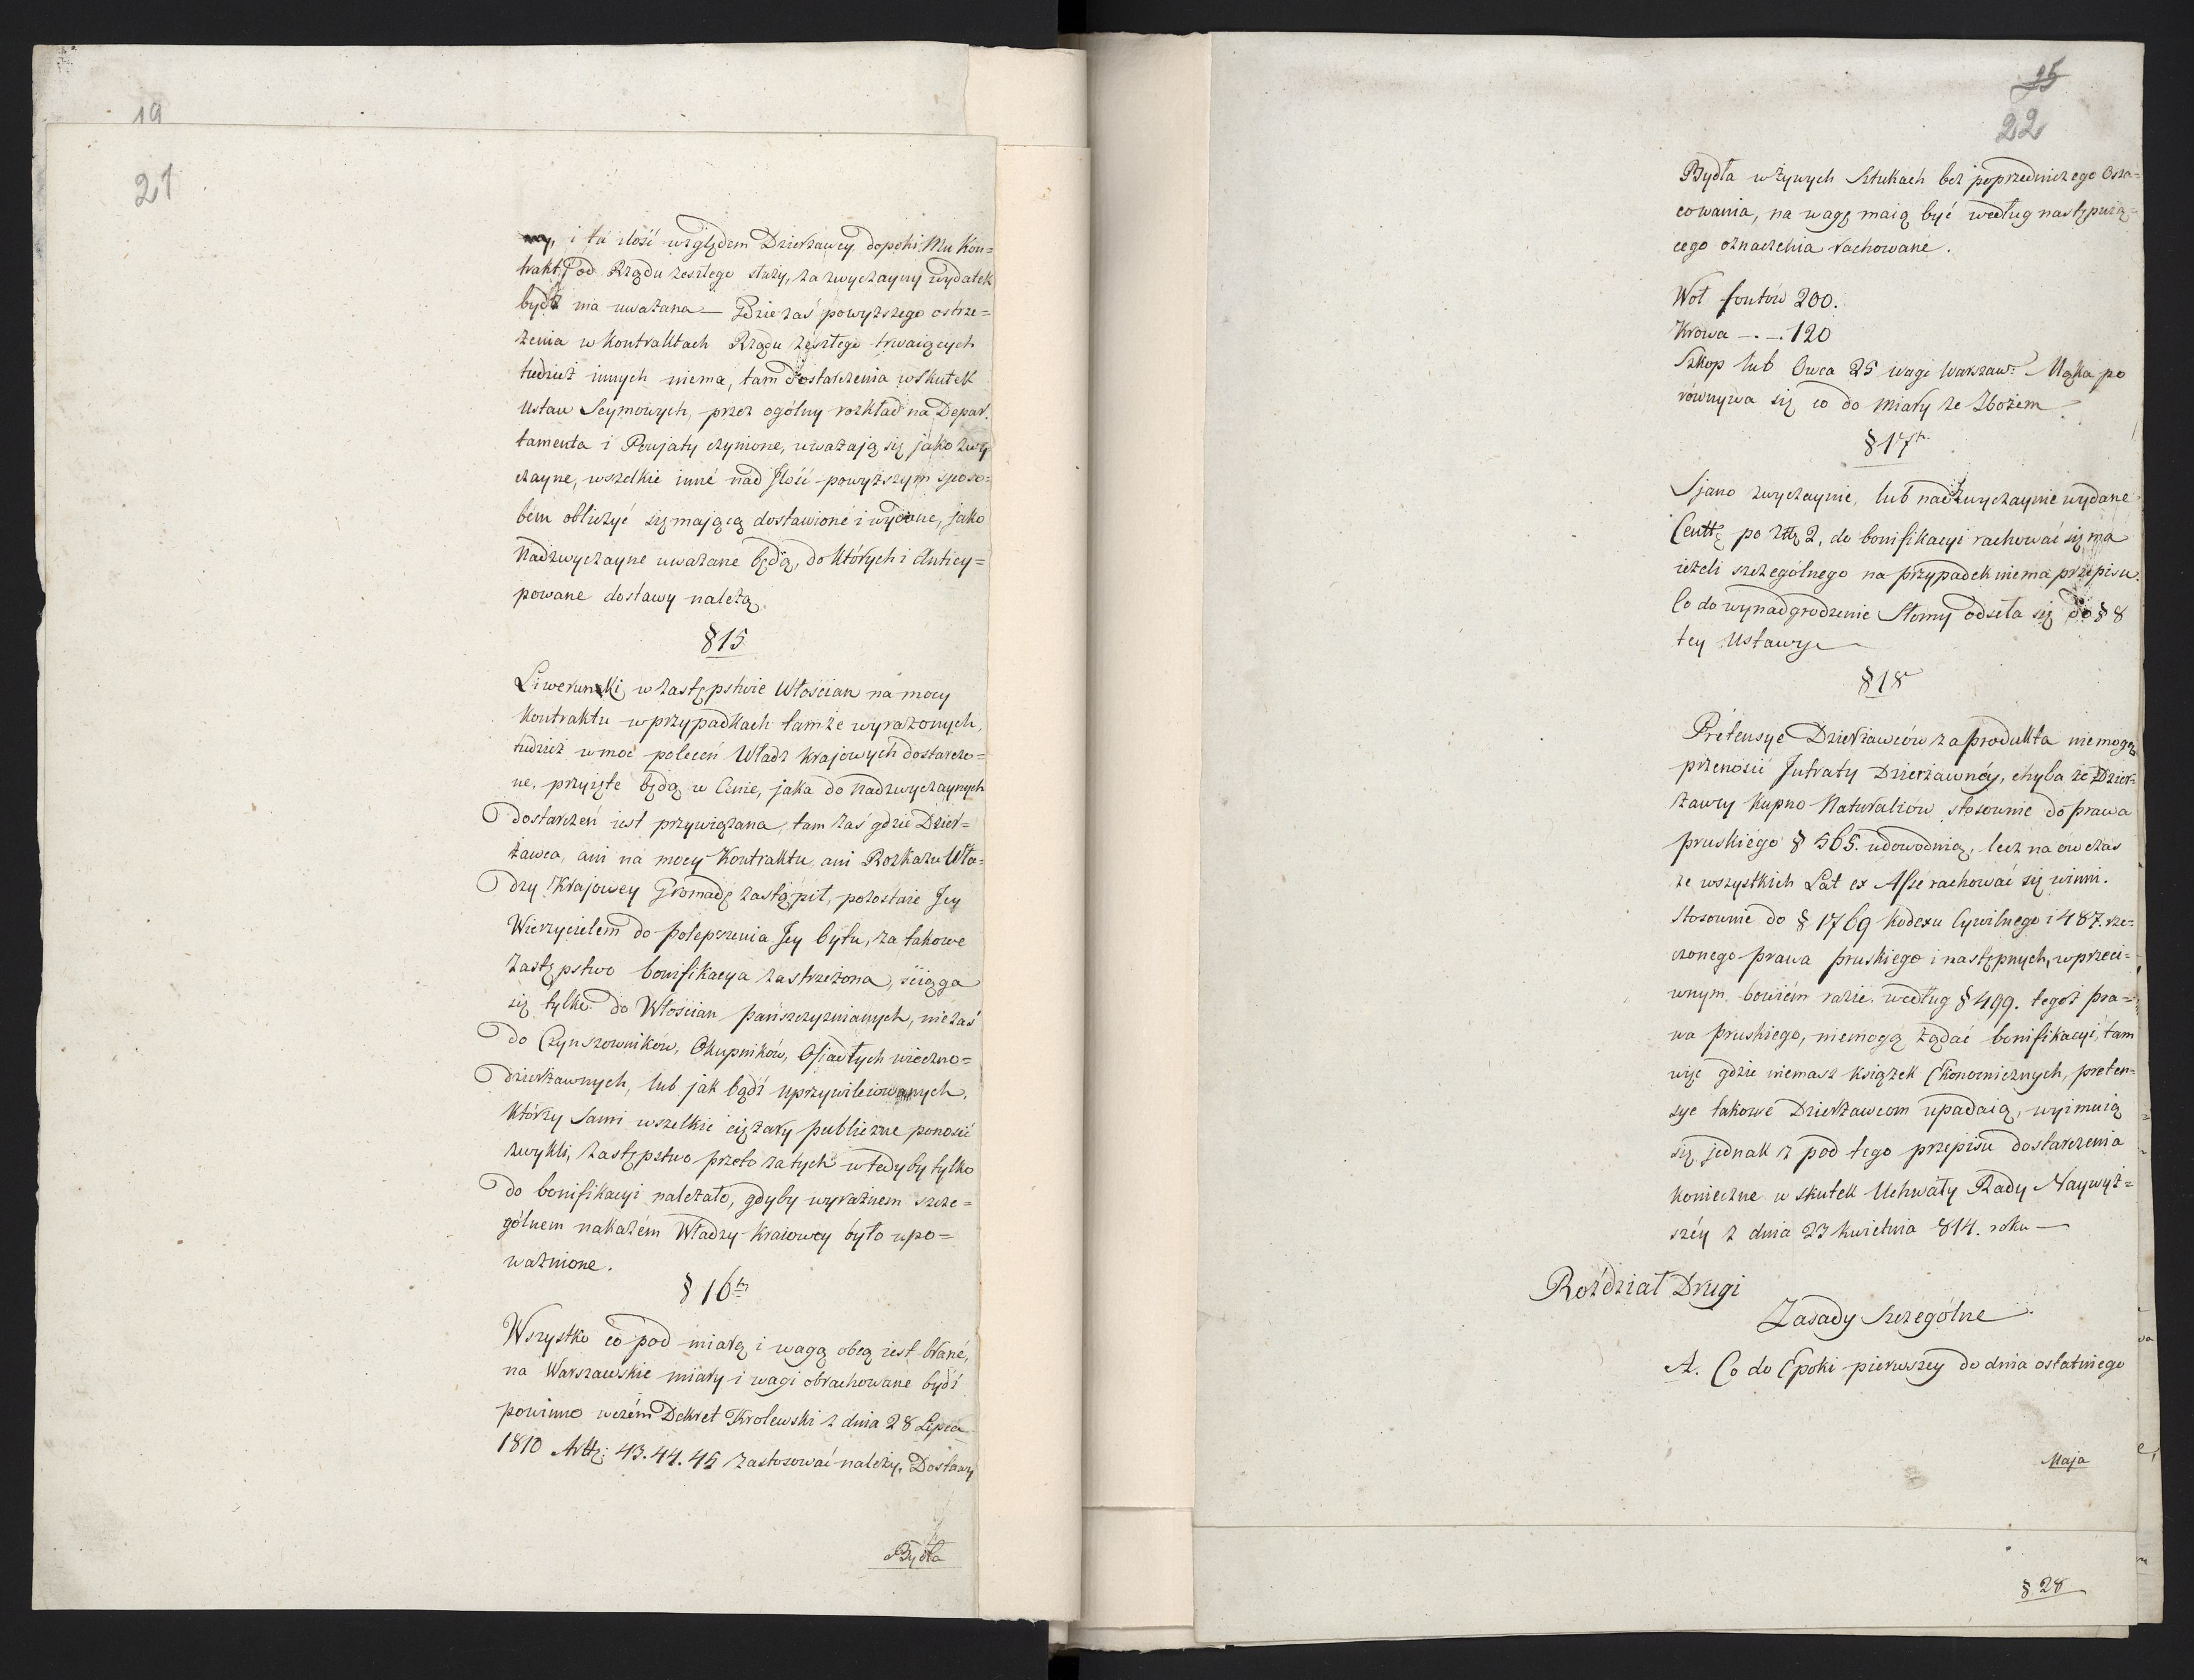 19
21
i ta ilość względem Dzierżawcy dopoki Mu Kon=
trakt od Rządu zeszłego służy, za zwyczayny wydatek
bydź ma uważana — Gdzie zaś powyższego ostrze=
żenia w Kontraktach Rządu zeszłego trwaiących
tudzież innych niema, tam dostarczenia w skutek
Ustaw Seymowych, przez ogólny rozkład na Depar.
tamenta i Powjaty czynione, uważają się jako zwy
czayne, wszelkie inné nad Jlość powyższym sposo=
bem obliczyć się mającą dostawioné i wydane, jako
Nadzwyczayne uważane będą, do których i Anticy=
powane dostawy należą.
§ 15
Liwerunki w zastępstwie Włościan na mocy
Kontraktu w przypadkach tamże wyrażonych,
tudzież w moc poleceń Władz Krajowych dostarczo=
ne, przyięte będą w Cenie, jaka do Nadzwyczaynych
dostarczeń iest przywiązana, tam zaś gdzie Dzier=
żawca, ani na mocy Kontraktu, ani Rozkazu Wła=
dzy Krajowey Gromadę zastąpił, pozostaie Jey
Wierzycielem do polepszenia Jey bytu, za takowe
zastępstwo bonifikacya zastrzeżona, ściąga
się tylko do Włościan pańszczyznianych, nie zaś
do Czynszowników, Okupników, Osiadłych wieczno=
dzierżawnych, lub jak bądź uprzywileiowanych,
Którzy sami wszelkie ciężary publiczne ponosić
zwykli, zastępstwo przeto za tych wtedyby tylko
do bonifikacyi należało, gdyby wyraźnem szcze=
gólnem nakazem Władzy Kraiowey było upo=
ważnione.
§ 16
Wszystko co pod miarą i wagą obcą iest brané,
na Warszawskie miary i wagi obrachowane bydź
powinno w czém Dekret Krolewski z dnia 28 Lipca
1810 Artt: 43. 44. 45 zastosować należy. Dostawy
Bydła
25
22
Bydła w żywych Sztukach bez poprzedniczego Osza=
cowania, na wagę maią być według następuią=
cego oznaczenia rachowané.
Woł funtów 200.
Krowa — . — 120
Skop lub Owca 25 wagi Warszaw: Mąka po
równywa się co do miary ze Zbożem
§ 17
Siano zwyczaynie, lub nadzwyczaynie wydane
Centt po złł 2, do bonifikacyi rachować się ma
ieżeli szczególnego na przypadek niema przepisu.
Co do wynadgrodzenie Słomy odseła się do § 8
tey Ustawy
§ 18
Pretensye Dzierżawców za produkta niemogą
przenosić Jntraty Dzierżawnéy, chyba że Dzier=
żawcy kupno Naturaliow stosownie do prawa
pruskiego § 565. udowodnią, lecz na ów czas
ze wszystkich Lat ex Asse rachować się winni.
Stosownie do § 1769 Kodexu Cywilnego i 487. rze=
czonego prawa pruskiego i następnych, w przeci=
wnym bowiém razie według § 499. tegoż pra=
wa pruskiego, niemogą żądać bonifikacyi, tam
więc gdzie niemasz książek Ekonomicznych, preten=
sye takowé Dzierżawcom upadaią, wyimuią
się jednak z pod tego przepisu dostarczenia
konieczne w skutek Uchwały Rady Naywyż=
széy z dnia 23 kwietnia 814. roku —
Rozdział Drugi
Zasady Szczególne
A. Co do Epoki pierwszey do dnia ostatniego
Maja
§ 28